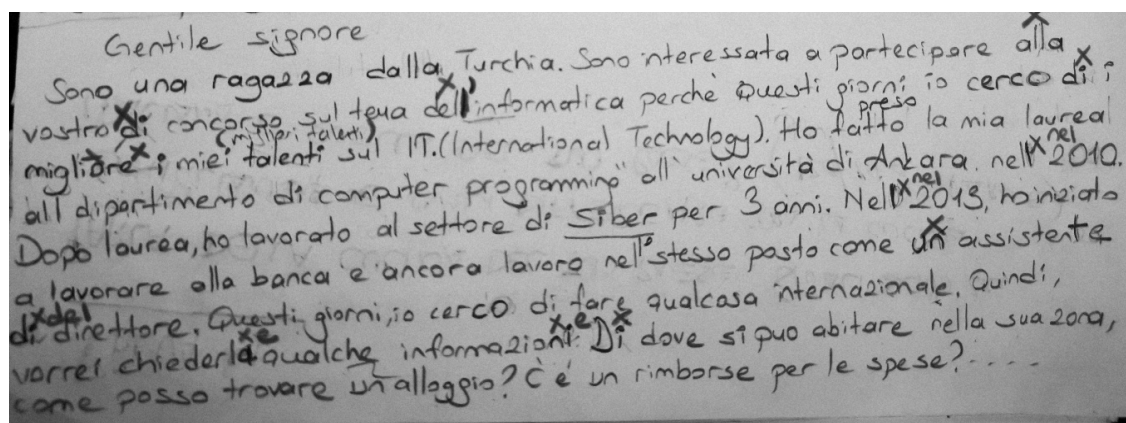 Gentile signore
Sono una ragazza dalla Turchia. Sono interessata a partecipare alla
vostro di concorso sul tema dell'informatica perchè Questi giorni io cerco di i
migliore i miei talenti (migliori talenti) sul IT.(International Technology). Ho fatto preso la mia laurea
all dipartimento di computer programming all'università di Ankara. nell nel 2010.
Dopo laurea, ho lavorato al settore di Siber per 3 anni. Nell nel 2013, ho iniziato
a lavorare alla banca e ancora lavoro nell'stesso posto come un assistente
di del direttore. Questi giorni, io cerco di fare qualcosa internazionale. Quindi,
vorrei chiederla e qualche informazioni e. Di dove si puo abitare nella sua zona,
come posso trovare un'alloggio? C'è un rimborse per le spese?.....